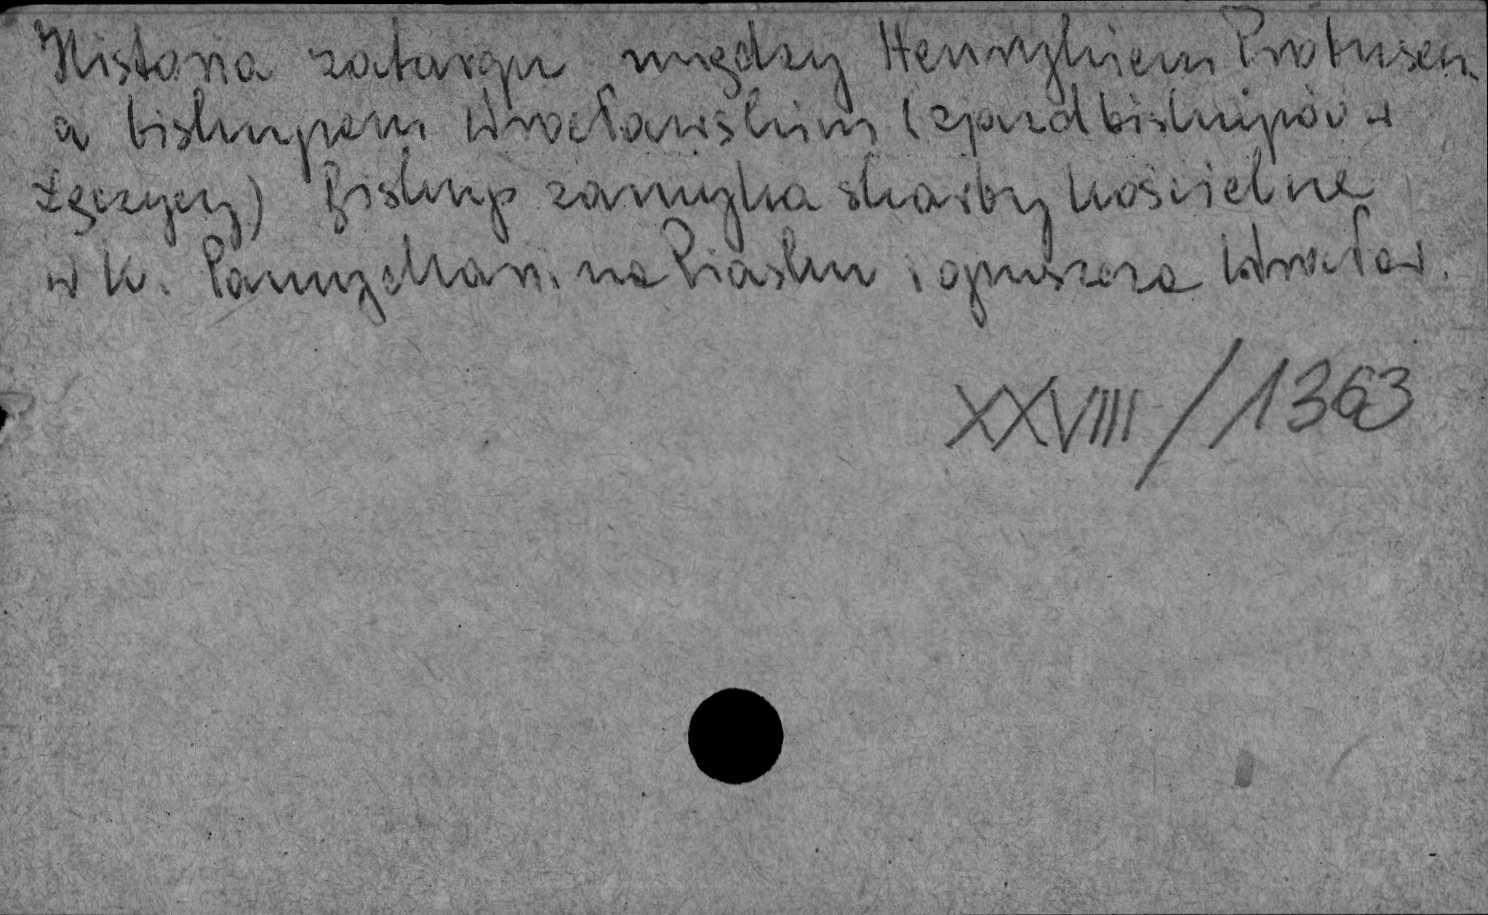 Historia zatargu między Henrykiem Probusem
a biskupem Wrocławskim (zjazd biskupów w
Łęczycy) Biskup zamyka skarby kościelne
w k. Panny Marii na Piasku i opuszcza Wrocław.
XXVIII/1363